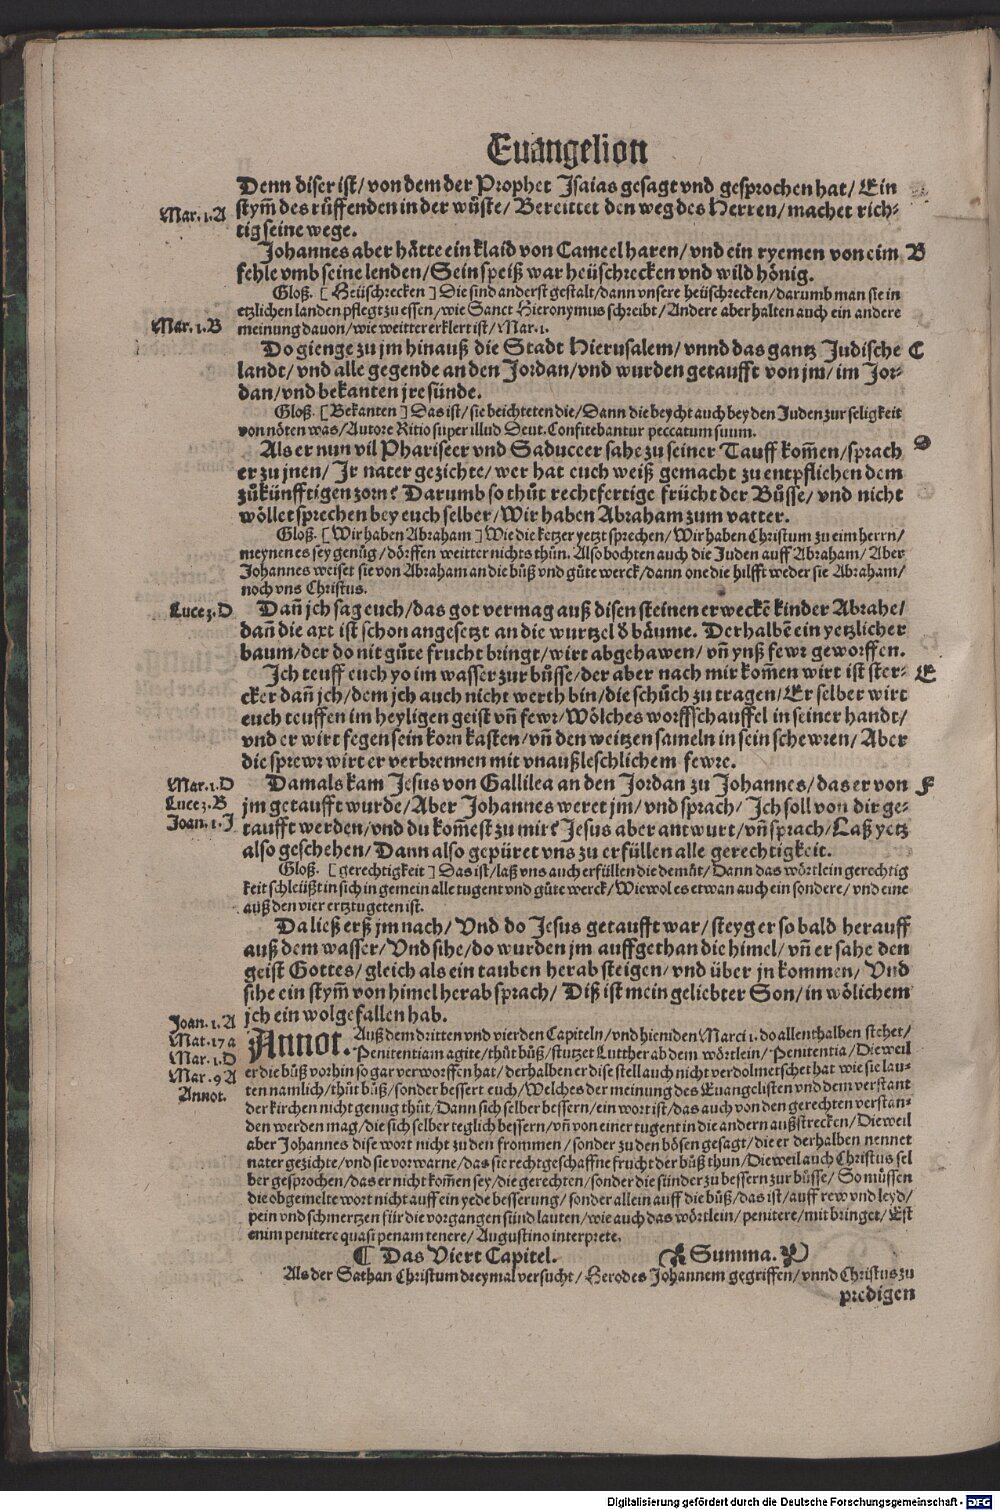 Euangelion
Denn diser ist/ von dem der Prophet Isaias gesagt vnd gesprochen hat/ Ein
Mar. 1. A
stym̃ des rüffenden in der wüste/ Bereittet den weg des Herren/ machet rich-
tig seine wege.
Johannes aber hätte ein klaid von Cameel haren/ vnd ein ryemen von eim
B
fehle vmb seine lenden/ Sein speiß war heüschrecken vnd wild hönig.
Gloß. [ Heüschrecken ] Die sind anderst gestalt/ dann vnsere heüschrecken/ darumb man sie in
etzlichen landen pflegt zu essen/ wie Sanct Hieronymus schreibt/ Andere aber halten auch ein andere
Mar. 1. B
meinung dauon/ wie weitter erklert ist/ Mar. 1.
Do gienge zu jm hinauß die Stadt Hierusalem/ vnnd das gantz Judische
C
landt/ vnd alle gegende an den Jordan/ vnd wurden getaufft von jm/ im Jor-
dan/ vnd bekanten jre sünde.
Gloß. [ Bekanten ] Das ist/ sie beichteten die/ Dann die beycht auch bey den Juden zur seligkeit
von nöten was/ Autore Ritio super illud Deut. Confitebantur peccatum suum.
Als er nun vil Phariseer vnd Saduceer sahe zu seiner Tauff kom̃en/ sprach
D
er zu jnen/ Jr nater gezichte/ wer hat euch weiß gemacht zu entpfliehen dem
zůkünfftigen zorn? Darumb so thůt rechtfertige frücht der Bůsse/ vnd nicht
wöllet sprechen bey euch selber/ Wir haben Abraham zum vatter.
Gloß. [ Wir haben Abraham ] Wie die ketzer yetzt sprechen/ Wir haben Christum zu eim herrn/
meynen es sey genůg/ dörffen weitter nichts thůn. Also bochten auch die Juden auff Abraham/ Aber
Johannes weiset sie von Abraham an die bůß vnd gůte werck/ dann one die hilfft weder sie Abraham/
noch vns Christus.
Luce 3. D
Dañ jch sag euch/ das got vermag auß disen steinen erweckẽ kinder Abrahe/
dañ die axt ist schon angesetzt an die wurtzel d bäume. Derhalbẽ ein yetzlicher
baum/ der do nit gůte frucht bringt/ wirt abgehawen/ vñ ynß fewr geworffen.
Ich teuff euch yo im wasser zur bůsse/ der aber nach mir kom̃en wirt ist ster-
E
cker dañ jch/ dem jch auch nicht werth bin/ die schůch zu tragen/ Er selber wirt
euch teuffen im heyligen geist vñ fewr/ Wölches worffschauffel in seiner handt/
vnd er wirt fegen sein korn kasten/ vñ den weitzen sameln in sein schewren/ Aber
die sprewr wirt er verbrennen mit vnaußleschlichem fewre.
Mar. 1. D
Damals kam Jesus von Gallilea an den Jordan zu Johannes/ das er von
F
Luce 3. B
jm getaufft wurde/ Aber Johannes weret jm/ vnd sprach/ Ich soll von dir ge-
Joan. 1. J
taufft werden/ vnd du kom̃est zu mir? Jesus aber antwurt/ vñ sprach/ Laß yetz
also geschehen/ Dann also gepüret vns zu erfüllen alle gerechtigkeit.
Gloß. [ gerechtigkeit ] Das ist/ laß vns auch erfüllen die demůt/ Dann das wörtlein gerechtig
keit schleüßt in sich in gemein alle tugent vnd gůte werck/ Wiewol es etwan auch ein sondere/ vnd eine
auß den vier ertztugeten ist.
Da ließ erß jm nach/ Vnd do Jesus getaufft war/ steyg er so bald herauff
auß dem wasser/ Vnd sihe/ do wurden jm auffgethan die himel/ vñ er sahe den
geist Gottes/ gleich als ein tauben herab steigen/ vnd über jn kommen/ Vnd
sihe ein stym̃ von himel herab sprach/ Diß ist mein geliebter Son/ in wölichem
Joan. 1. A
jch ein wolgefallen hab.
Mat. 17 a
Annot. Auß dem dritten vnd vierden Capiteln/ vnd hieniden Marci 1. do allenthalben stehet/
Mar. 1. D
Penitentiam agite/ thůt bůß/ stutzet Lutther ab dem wörtlein/ Penitentia/ Die weil
Mar. 9 A
er die bůß vorhin so gar verworffen hat/ derhalben er dise stell auch nicht verdolmetschet hat wie sie lau-
Annot.
ten namlich/ thůt bůß/ sonder bessert euch/ Welches der meinung des Euangelisten vnd dem verstant
der kirchen nicht genug thůt/ Dann sich selber bessern/ ein wort ist/ das auch von den gerechten verstan-
den werden mag/ die sich selber teglich bessern/ vñ von einer tugent in die andern außstrecken/ Die weil
aber Johannes dise wort nicht zu den frommen/ sonder zu den bösen gesagt/ die er derhalben nennet
nater gezichte/ vnd sie vorwarne/ das sie rechtgeschaffne frucht der bůß thun/ Die weil auch Christus sel
ber gesprochen/ das er nicht kom̃en sey/ die gerechten/ sonder die sünder zu bessern zur bůsse/ So můssen
die obgemelte wort nicht auff ein yede besserung/ sonder allein auff die bůß/ das ist/ auff rew vnd leyd/
pein vnd schmertzen für die vorgangen sünd lauten/ wie auch das wörtlein/ penitere/ mit bringet/ Est
enim penitere quasi penam tenere/ Augustino interprete.
¶ Das Viert Capitel. Summa.
Als der Sathan Christum dreymal versucht/ Herodes Johannem gegriffen/ vnnd Christus zu
predigen
Digitalisierung gefördert durch die Deutsche Forschungsgemeinschaft - DFG